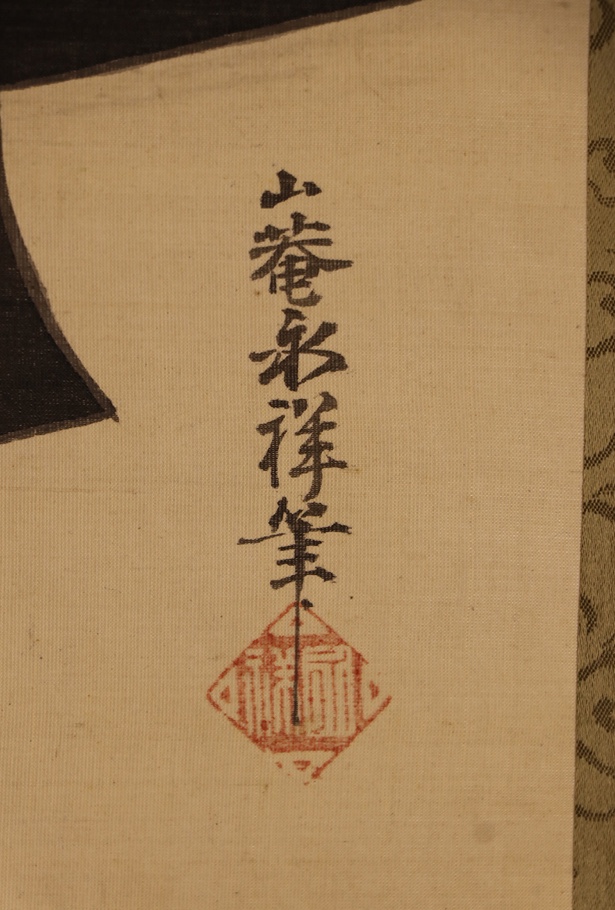 山菴永祥筆